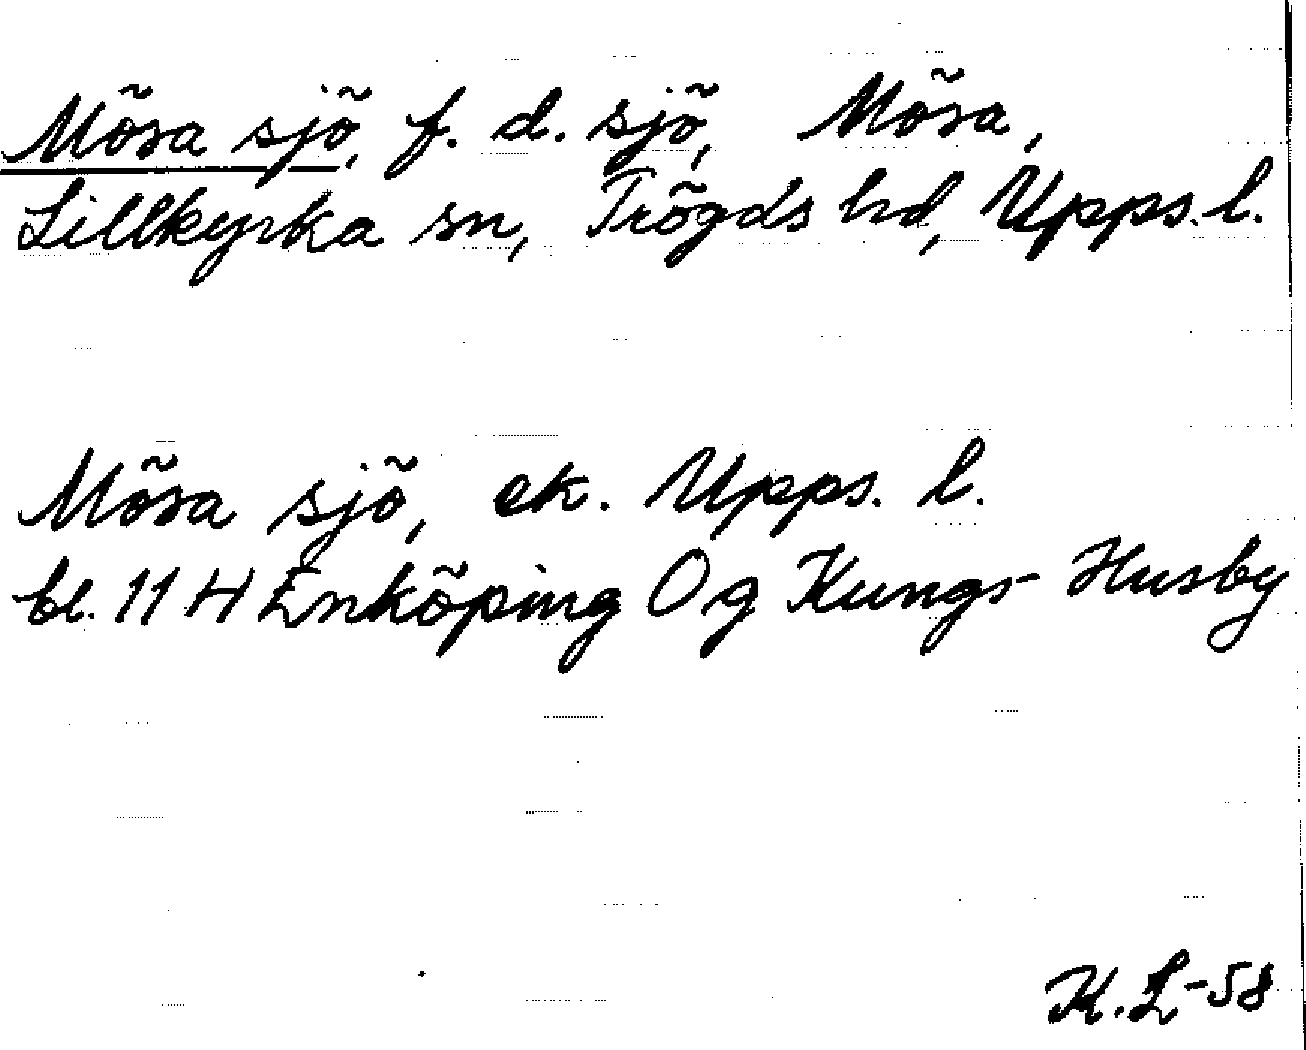 Mösa sjö, f. d. sjö, Mösa,
Lillkyrka sn, Trögds hd, Upps. l.
Mösa sjö, ek. Upps. l.
bl. 11 H Enköping 0 g Kungs-Husby
K. L-58